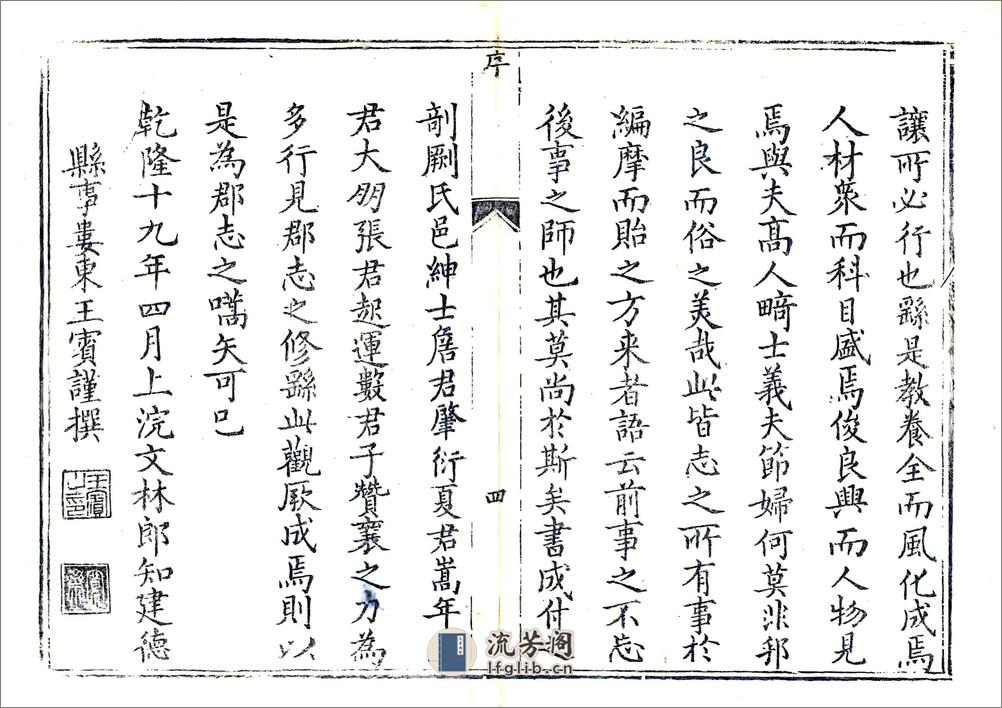 讓所必行也繇是教養全而風化成焉
人材衆而科目盛焉俊良興而人物見
焉與夫髙人畸士義夫節婦何莫非邦
之良而俗之美哉此皆志之所有事於
編摩而貽之方来者語云前事之不忘
後事之師也其莫尚於斯矣書成付
序
四
剞劂氏邑紳士詹君肇衍夏君嵩年
君大朋張君起運數君子贊襄之力為
多行見郡志之修繇此觀厥成焉則以
是為郡志之嚆矢可已
乾隆十九年四月上浣文林郎知建德
縣事婁東王賓謹撰
王賓之印
流芳阁
lfglib.cn